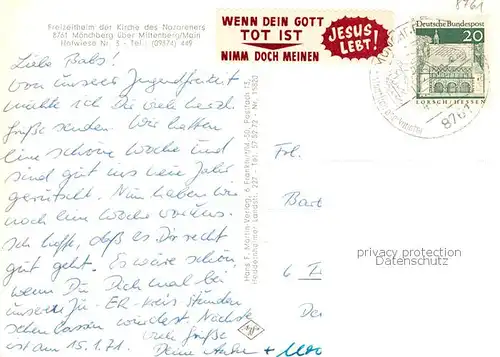 8761
Freizeitheim der Kirche des Nazareners
8761 Mönchberg über Miltenberg/Main
Hofwiese Nr. 3 - Tel.: (09374) 449
WENN DEIN GOTT
TOT IST
NIMM DOCH MEINEN
JESUS
LEBT!
Deutsche Bundespost
20
LORSCH/HESSEN
8761
Liebe Babs!
Von unserer Jugendfreizeit
möchte ich Dir viele herzl.
Grüße senden. Wir hatten
eine schöne Woche und
sind gut ins neue Jahr
gerutscht. Nun haben wir
noch eine Woche vor uns.
Ich hoffe, daß es Dir recht
gut geht. Es wäre schön
wenn Du Dich mal bei
unserer Ju-ER-Kreis Stunden
sehen lassen würdest. Nächste
ist am 15.1.71. Viele Grüße
Deine
Hans F. Martin-Verlag, 6 Frankfurt/M-50, Postfach 13,
Heddernheimer Landstr. 227 - Tel. 57 92 72 - Nr. 15020
Frl.
6
privacy protection
Datenschutz